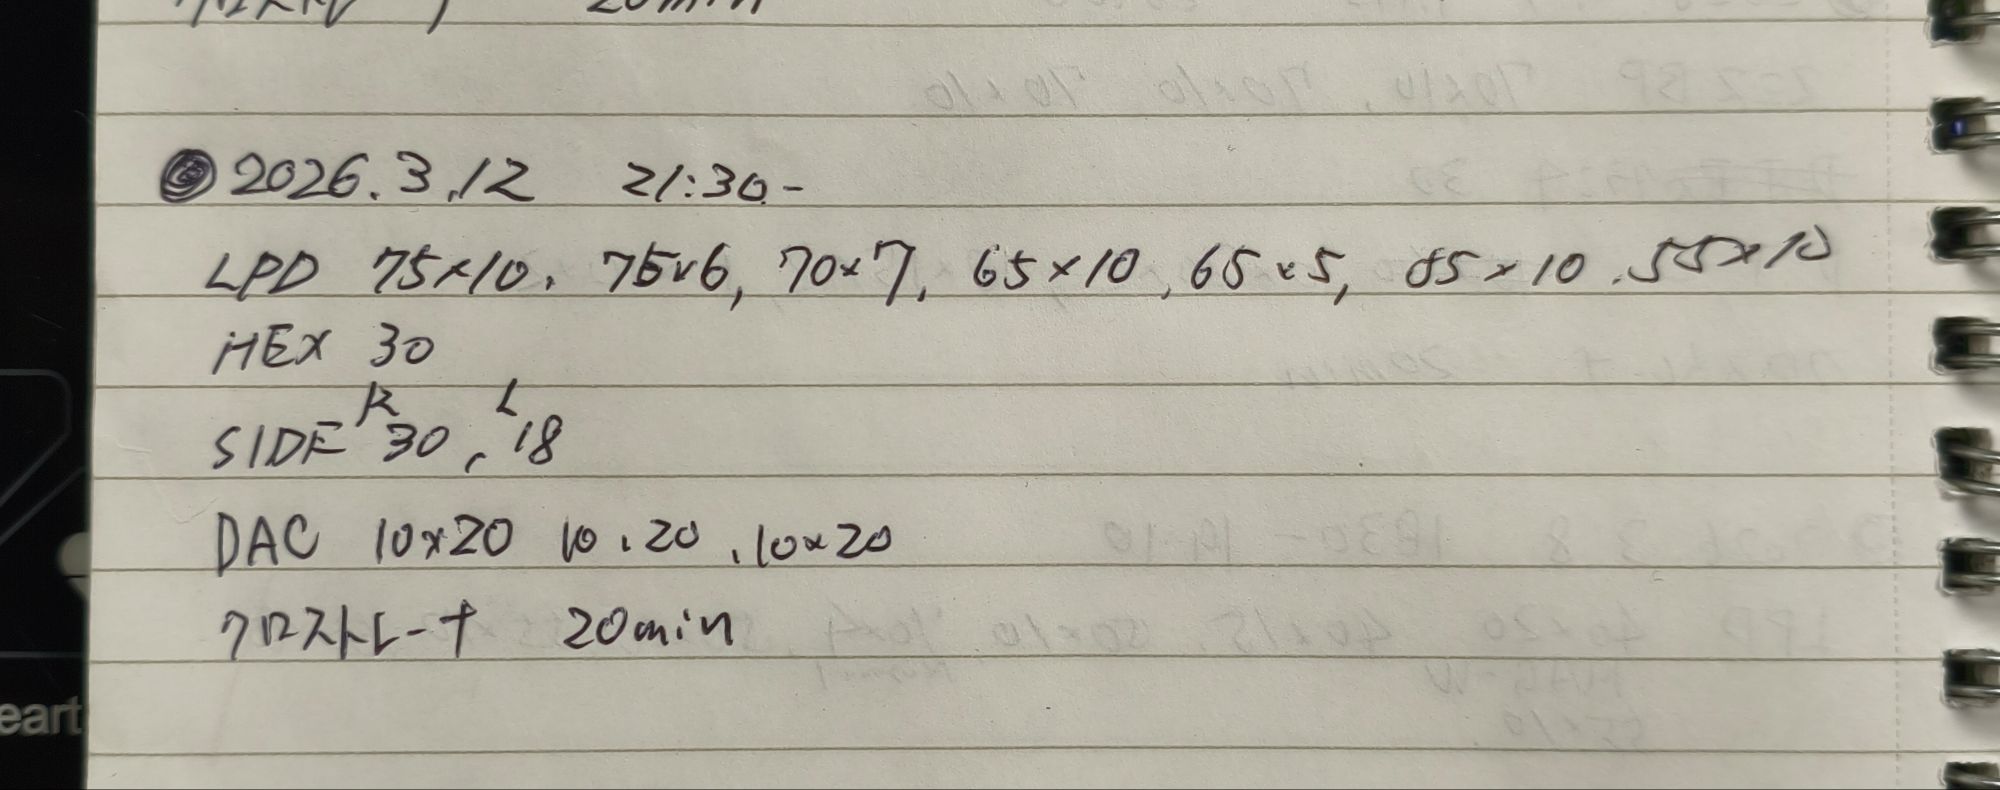 20min
2026.3.12 21:30-
LPD 75×10, 75×6, 70×7, 65×10, 65×5, 55×10, 55×10
HEX 30
R L
SIDE 30, 18
DAC 10×20 10.20, 10×20
クロストレーナ 20min
eart